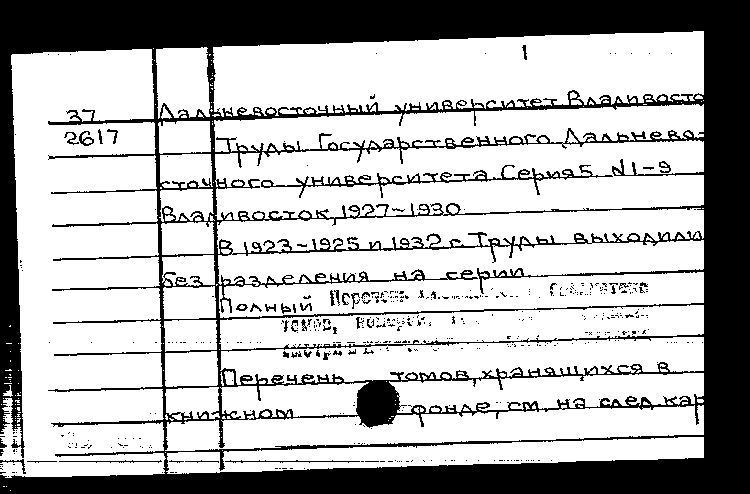 1
37 Дальневосточный университет Владивосто
2617 Труды Государственного Дальнево-
сточного университета. Серия 5 №1-9
Владивосток, 1927-1930
В 1923-1925 и 1932 г. Труды выходили
без разделения на серии
Полный Перечень
томов, номеров,
Перечень томов, хранящихся в
книжном фонде, см. на след кар